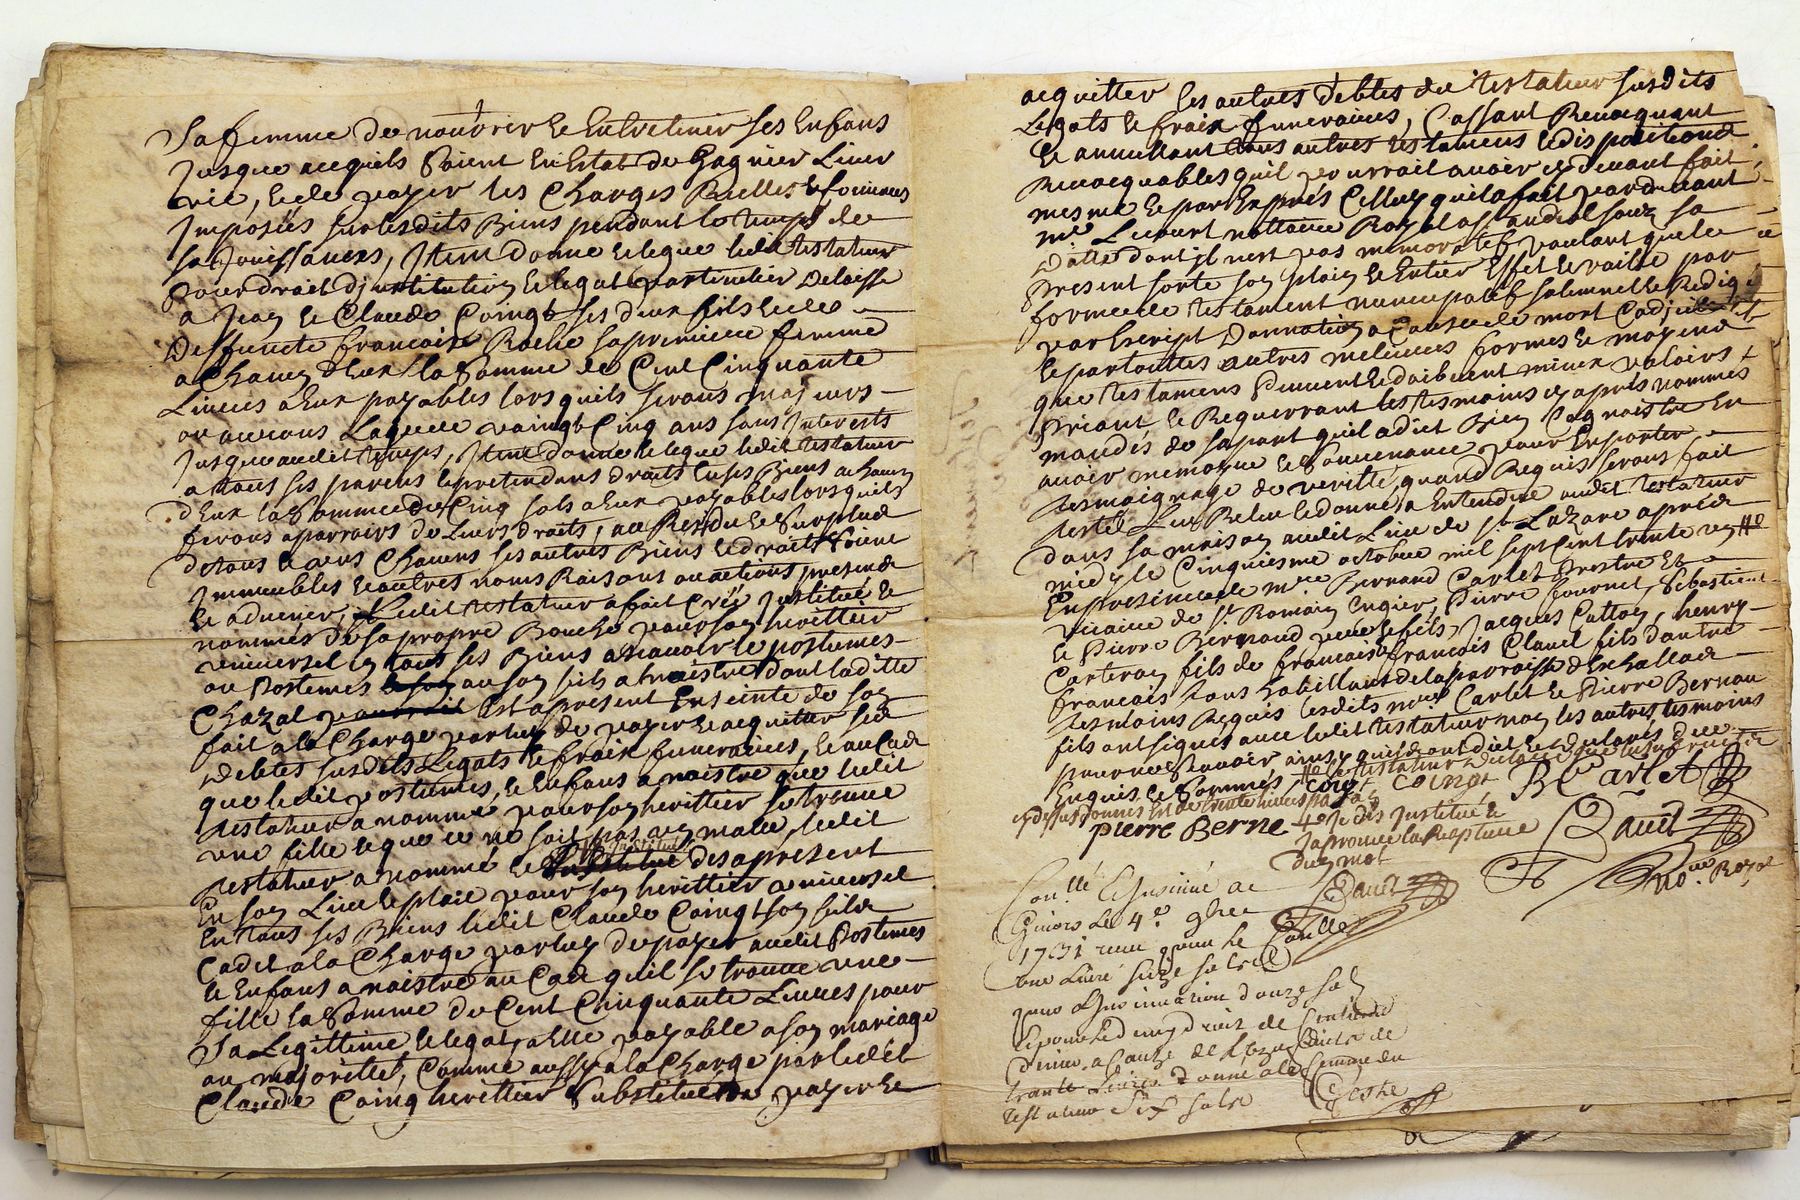 Sa femme de nourrir et Entretenir ses Enfans
Jusque acequils Soient En Estat de Gagnier Leur
vie, et de payer les Charges Reelles et foncieres
Imposées sur lesdits Biens pendant le temps de
sa Jouissances, Item donne et legue ledit testateur
Pour droit d'institution et legat particulier delaisse
a Jean et Claude Coingt ses deux fils et de
Deffuncte francoise Roche sa premiere femme
a chacun d'Eux la Somme de Cent Cinquante
Livres a Eux payables lors quils seront majeurs
ou auront Lage de vaingt Cinq ans sans Interests
Jusque audit temps, Item donne et legue ledit testateur
a tous ses parens et pretendans droits en ses Biens a chacun
d'Eux la Somme de Cinq sols a Eux payables lors quils
feront aparroirs de Leurs droits, au Residu et Surplus
de tous et uns Chacuns ses autres Biens et droits
Immeubles et autres noms Raisons ou actions presens
et advenir, Ledit testateur a fait Créé Institué et
nommés de sa propre Bouche pour son herittier
universel en tous ses Biens ascavoir le postumes
ou Postumes au son fils a naistre dont laditte
Chazal est apresent Enceinte de son
fait a la Charge par luy de payer et acquitter ses
debtes susdits Legats et fraix funeraires, et au Cas
que ledit postumes, et Enfans a naistre que ledit
testateur a nommé pour son herittier se trouve
une fille et que ce ne soit pas un male, ledit
testateur a nommé et institué des apresent
En son Lieu et place pour son herittier universel
En tous ses Biens ledit Claude Coingt son fils
Cadet a la Charge par luy de payer audit Postumes
et Enfans a naistre au Cas quil se trouve une
fille la Somme de Cent Cinquante Livres pour
Sa Legittime et legat, a Elle payable a son mariage
ou majorittet, Comme aussy a la Charge par ledit
Claude Coing herittier Substitué de payer et
acquitter les autres debtes du testateur susdits
Legats et fraix funeraires, Cassant Revocquant
et annullant tous autres testamens et dispositions
Revocquables quil pourroit avoir cy devant fait
mesme et par Exprés Celluy quil a fait par devant
me. Lieourt nottaire Royal a St andeol souz sa
datte dont il n'est pas memoratif voulant que le
present sorte son plain et Entier Effet et vaille par
forme de testament nuncupatif solemnel et Redigé
par Escript Donnation a Cause de mort Codicille et
et par touttes autres melieures formes et moyens
que testamens peuvent et doibvent mieux valoirs
Priant et Requerrant les tesmoins cy aprés nommés
mandés de sa part quil a dict Bien Cognoistre En
avoir memoyre et Souvenance pour En porter
tesmoignage de verité, quand Requis seront fait
testé Leu Releu et donné a Entendre audit testateur
dans sa maison audit Lieu de St Lazare aprés
midy le Cinquiesme octobre mil sept Cent trente un
En presence de mre Bernard Carlet Prestre Et
vicaire de St Romain Engier, Pierre fournel, Sebastien
et Pierre Bernaud pere et fils, Jacques Catton, henry
Carteron fils de francois et francois Clavel fils d'autre
francois tous habittans de la parroisse d'Eschallas
tesmoins Requis lesdits mre Carlet et Pierre Bernau
fils ont signés avec ledit testateur non les autres tesmoins
pour ne scavoir ainsy quils ont dict et declarés de ce
Enquis et Sommés
coingt BCarlet
pierre Berne
Je dis Institué et
Japrouve la Rapture
du mot
Dauit
no.re Royal
Conllé Et Insinué a
Givors Le 4e 9bre
1731 reçu pour le Conlle
une Livre seize sols et
pour L'Insinuation douze sols
trante Livres donné a la femme du
testateur Six sols